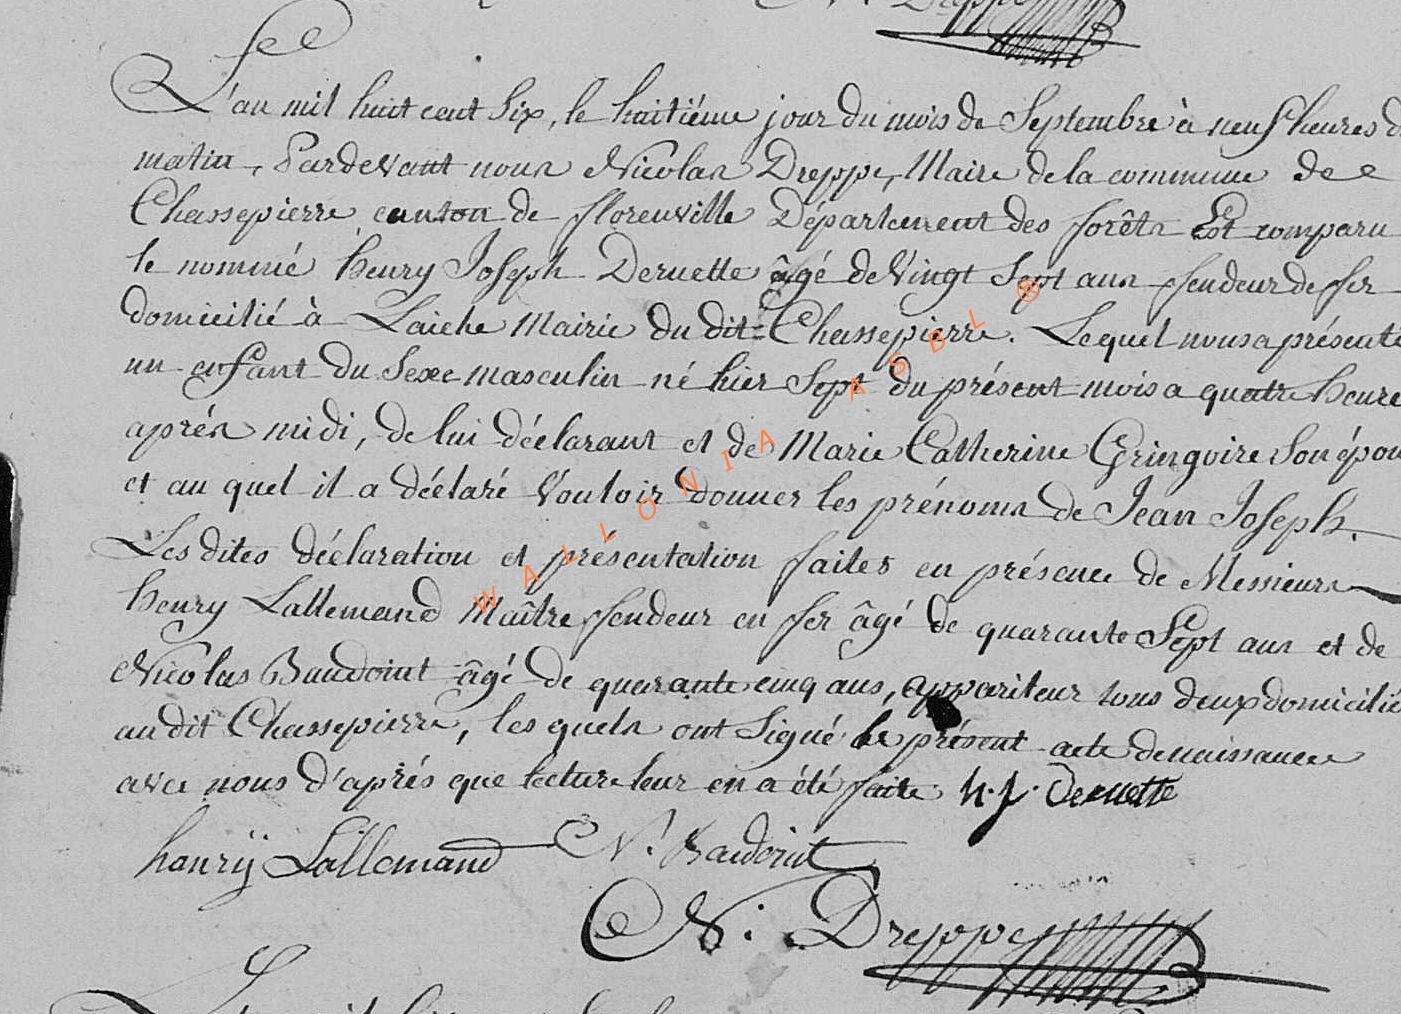 N. Dreppe
L'an mil huit cent six, le huitiéme jour du mois de Septembre à neuf heures d
matin, Pardevant nous Nicolas Dreppe, Maire de la commune de
Chassepierre canton de florenville Département des forêts Est comparu
le nommé henry Joseph Deruette âgé de Vingt Sept ans fendeur de fer
domicilié à Laiche Mairie du dit-Chassepierre. Lequel nous a présenté
un enfant du Sexe masculin né hier Sept du présent mois a quatre heure
aprés midi, de lui déclarant et de Marie Catherine Gringoire Son épou
et au quel il a déclaré Vouloir donner les prénoms de Jean Joseph.
Les dites déclaration et présentation faites en présence de Messieurs
henry Lallemand Maître fendeur en fer âgé de quarante Sept ans et de
Nicolas Baudoint âgé de quarante cinq ans, appariteur tous deux domicilié
au dit Chassepierre, les quels ont Signé le présent acte de naissance
avec nous d'aprés que lecture leur en a été faite. h. j. Deruette
henrÿ Lallemand N. Baudoint
N. Dreppe
WALLONIA ASBL ®